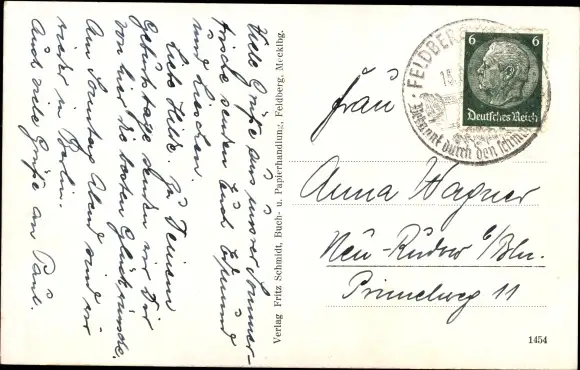 Viele Grüße aus unserer Sommer-
frische senden Euch Erich und
und Lieschen.
Liebe Hilde. Zu Deinem
Geburtstage senden wir Dir
von hier die besten Glückwünsche.
Am Sonntag Abend sind wir
wieder in Berlin.
Auch viele Grüße an Paul.
Verlag Fritz Schmidt, Buch- u. Papierhandlung, Feldberg, Mecklbg.
FELDBER
Bekannt durch den schön
6 6
Deutsches Reich
Frau
Anna Wagner
Neu-Rudow b/Bln.
Primelweg 11
1454